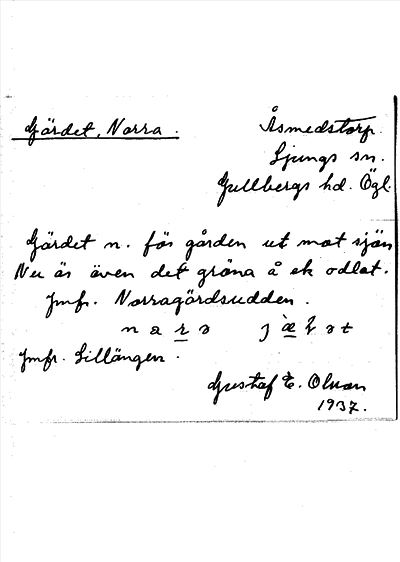 Gärdet, Norra.
Åsmedstorp.
Ljungs sn.
Gullbergs hd. Ögl.
Gärdet n. för gården ut mot sjön
Nu är även det gröna å ek odlat.
Jmfr. Norragärdsudden.
Jmfr. Lillängen.
Gustaf E. Olson
1937.